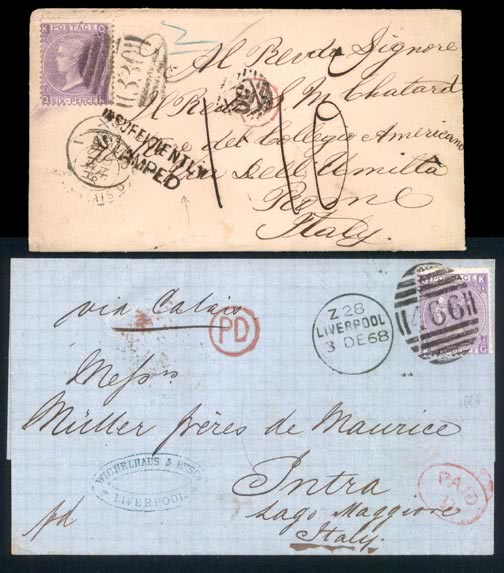 POSTAGE
SIX-PENCE
Al Revdo Signore
Al Revdo S. M. Chatard
del Collegio Americano
Via dell' Umiltà
Rome
Italy.
INSUFFICIENTLY
STAMPED
via Calais
PD
Z 28
LIVERPOOL
3 DE 68
466
POSTAGE
Messrs
Müller frères de Maurice
Intra
Lago Maggiore
Italy.
WICHELHAUS & BUSCH
LIVERPOOL
PAID
pd